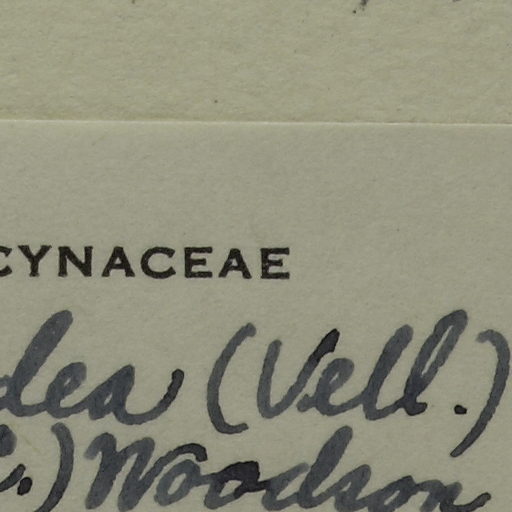 CYNACEAE
dea (Vell.)
.) Woodson